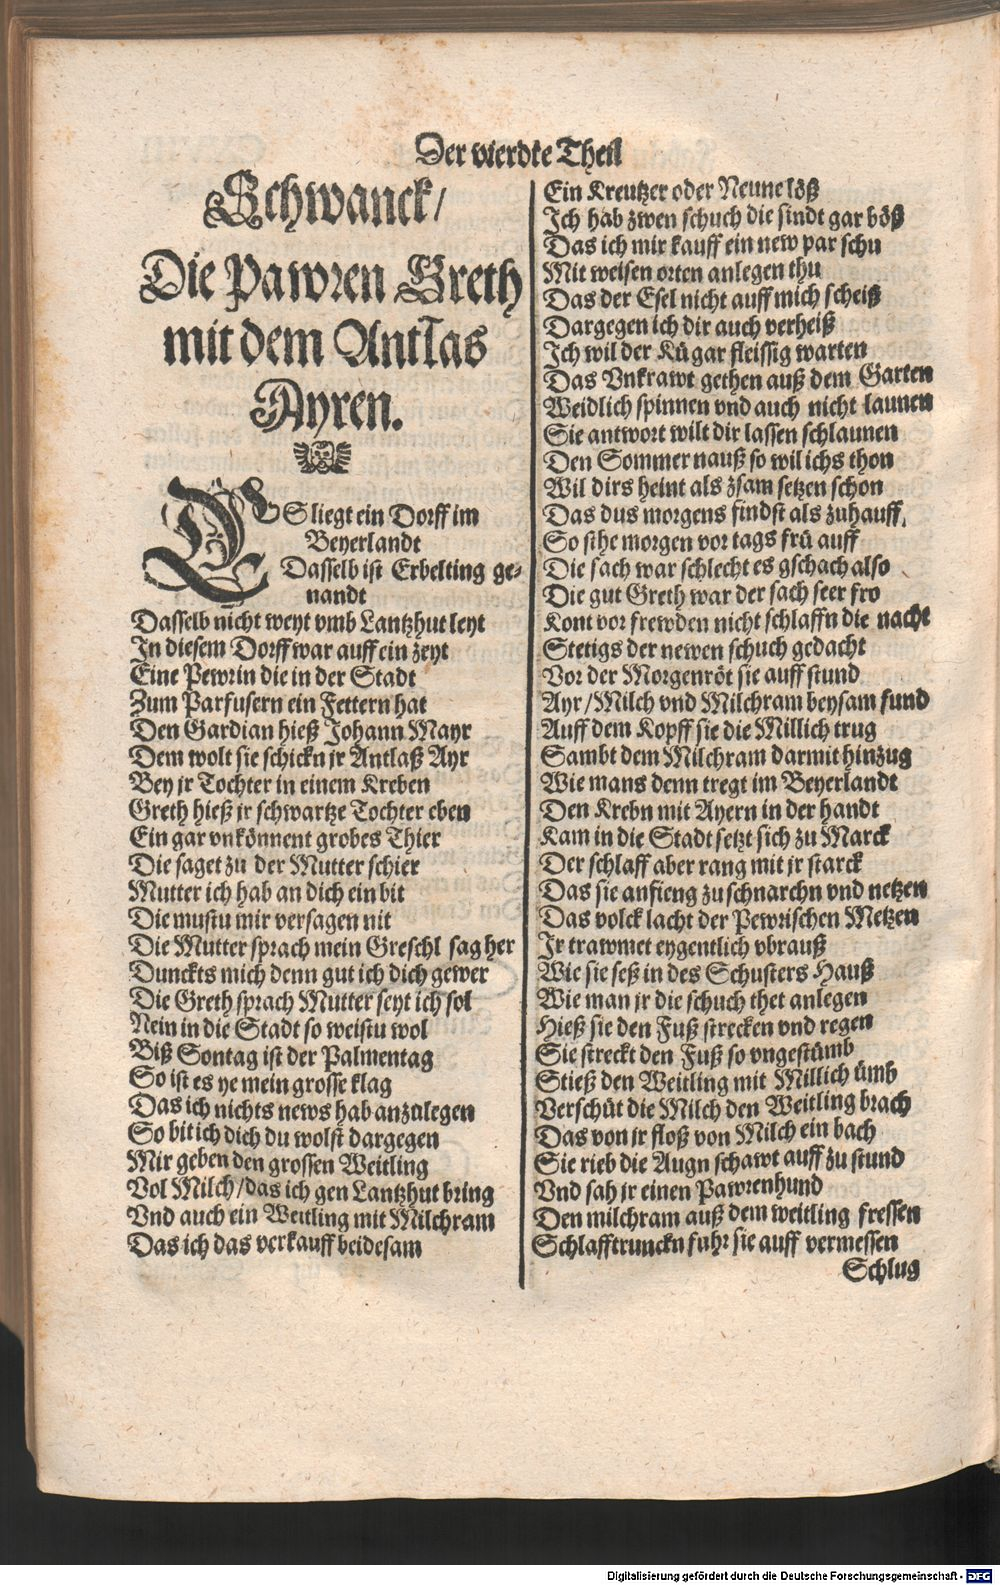 Der vierdte Theil
Schwanck/
Die Pawren Greth
mit dem Antlas
Ayren.
ES liegt ein Dorff im
Beyerlandt
Dasselb ist Erbelting ge-
nandt
Dasselb nicht weyt vmb Lantzhut leyt
In diesem Dorff war auff ein zeyt
Eine Pewrin die in der Stadt
Zum Parfusern ein Fettern hat
Den Gardian hieß Johann Mayr
Dem wolt sie schickn jr Antlaß Ayr
Bey jr Tochter in einem Kreben
Greth hieß jr schwartze Tochter eben
Ein gar vnkönnent grobes Thier
Die saget zu der Mutter schier
Mutter ich hab an dich ein bit
Die mustu mir versagen nit
Die Mutter sprach mein Greschl sag her
Dunckts mich denn gut ich dich gewer
Die Greth sprach Mutter seyt ich sol
Nein in die Stadt so weistu wol
Biß Sontag ist der Palmentag
So ist es ye mein grosse klag
Das ich nichts news hab anzulegen
So bit ich dich du wolst dargegen
Mir geben den grossen Weitling
Vol Milch/das ich gen Lantzhut bring
Vnd auch ein Weitling mit Milchram
Das ich das verkauff beidesam
Ein Kreutzer oder Neune löß
Ich hab zwen schuch die sindt gar böß
Das ich mir kauff ein new par schu
Mit weisen orten anlegen thu
Das der Esel nicht auff mich scheiß
Dargegen ich dir auch verheiß
Ich wil der Kü gar fleissig warten
Das Vnkrawt gethen auß dem Garten
Weidlich spinnen vnd auch nicht launen
Sie antwort wilt dir lassen schlaunen
Den Sommer nauß so wil ichs thon
Wil dirs heint als zsam setzen schon
Das dus morgens findst als zuhauff,
So sthe morgen vor tags frü auff
Die sach war schlecht es gschach also
Die gut Greth war der sach seer fro
Kont vor frewden nicht schlaffn die nacht
Stetigs der newen schuch gedacht
Vor der Morgenröt sie auff stund
Ayr/Milch vnd Milchram beysam fund
Auff dem Kopff sie die Millich trug
Sambt dem Milchram darmit hinzug
Wie mans denn tregt im Beyerlandt
Den Krebn mit Ayern in der handt
Kam in die Stadt setzt sich zu Marck
Der schlaff aber rang mit jr starck
Das sie anfieng zu schnarchn vnd netzen
Das volck lacht der Pewrischen Metzen
Ir trawmet eygentlich vbrauß
Wie sie seß in des Schusters Hauß
Wie man jr die schuch thet anlegen
Hieß sie den Fuß strecken vnd regen
Sie streckt den Fuß so vngestümb
Stieß den Weitling mit Millich ümb
Verschüt die Milch den Weitling brach
Das von jr floß von Milch ein bach
Sie rieb die Augn schawt auff zu stund
Vnd sah jr einen Pawrenhund
Den milchram auß dem weitling fressen
Schlafftrunckn fuhr sie auff vermessen
Schlug
Digitalisierung gefördert durch die Deutsche Forschungsgemeinschaft - DFG